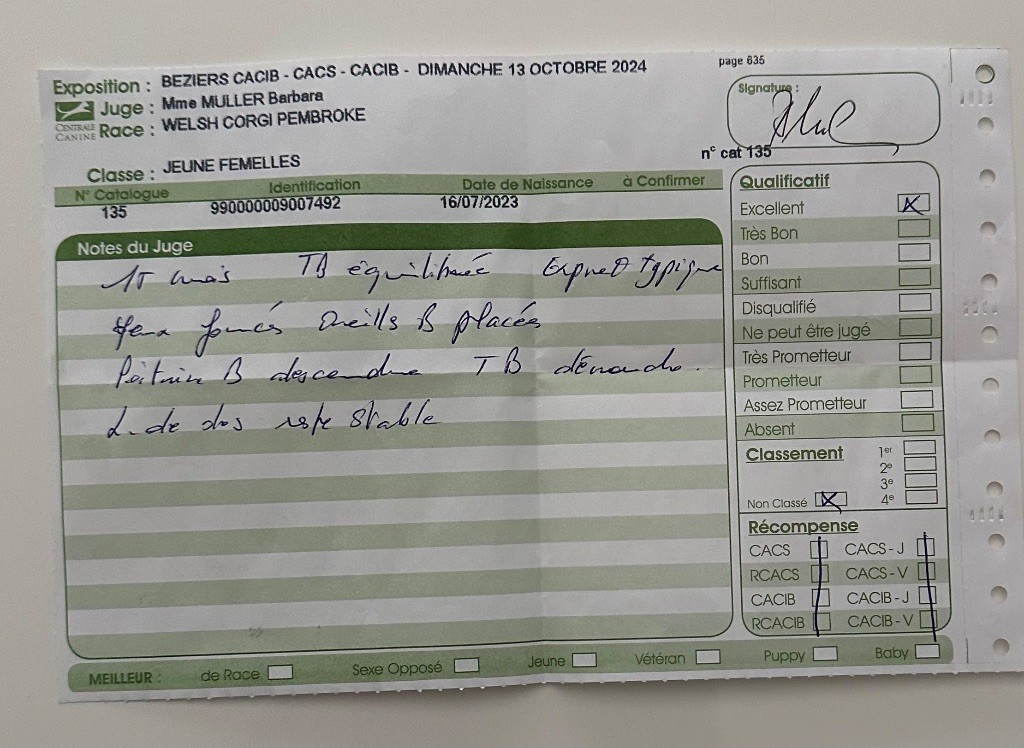 page 635
Exposition : BEZIERS CACIB - CACS - CACIB - DIMANCHE 13 OCTOBRE 2024
Juge : Mme MULLER Barbara
CENTRALE CANINE
Race : WELSH CORGI PEMBROKE
Signature :
n° cat 135
Classe : JEUNE FEMELLES
N° Catalogue Identification Date de Naissance à Confirmer
135 990000009007492 16/07/2023
Notes du Juge
15 mois TB équilibrée Express typique
Yeux foncés Oreilles B placées
Poitrine B descendue TB démarche.
L. de dos reste stable
Qualificatif
Excellent X
Très Bon
Bon
Suffisant
Disqualifié
Ne peut être jugé
Très Prometteur
Prometteur
Assez Prometteur
Absent
Classement 1er
2e
3e
Non Classé X 4e
Récompense
CACS CACS - J
RCACS CACS - V
CACIB CACIB - J
RCACIB CACIB - V
MEILLEUR : de Race Sexe Opposé Jeune Vétéran Puppy Baby